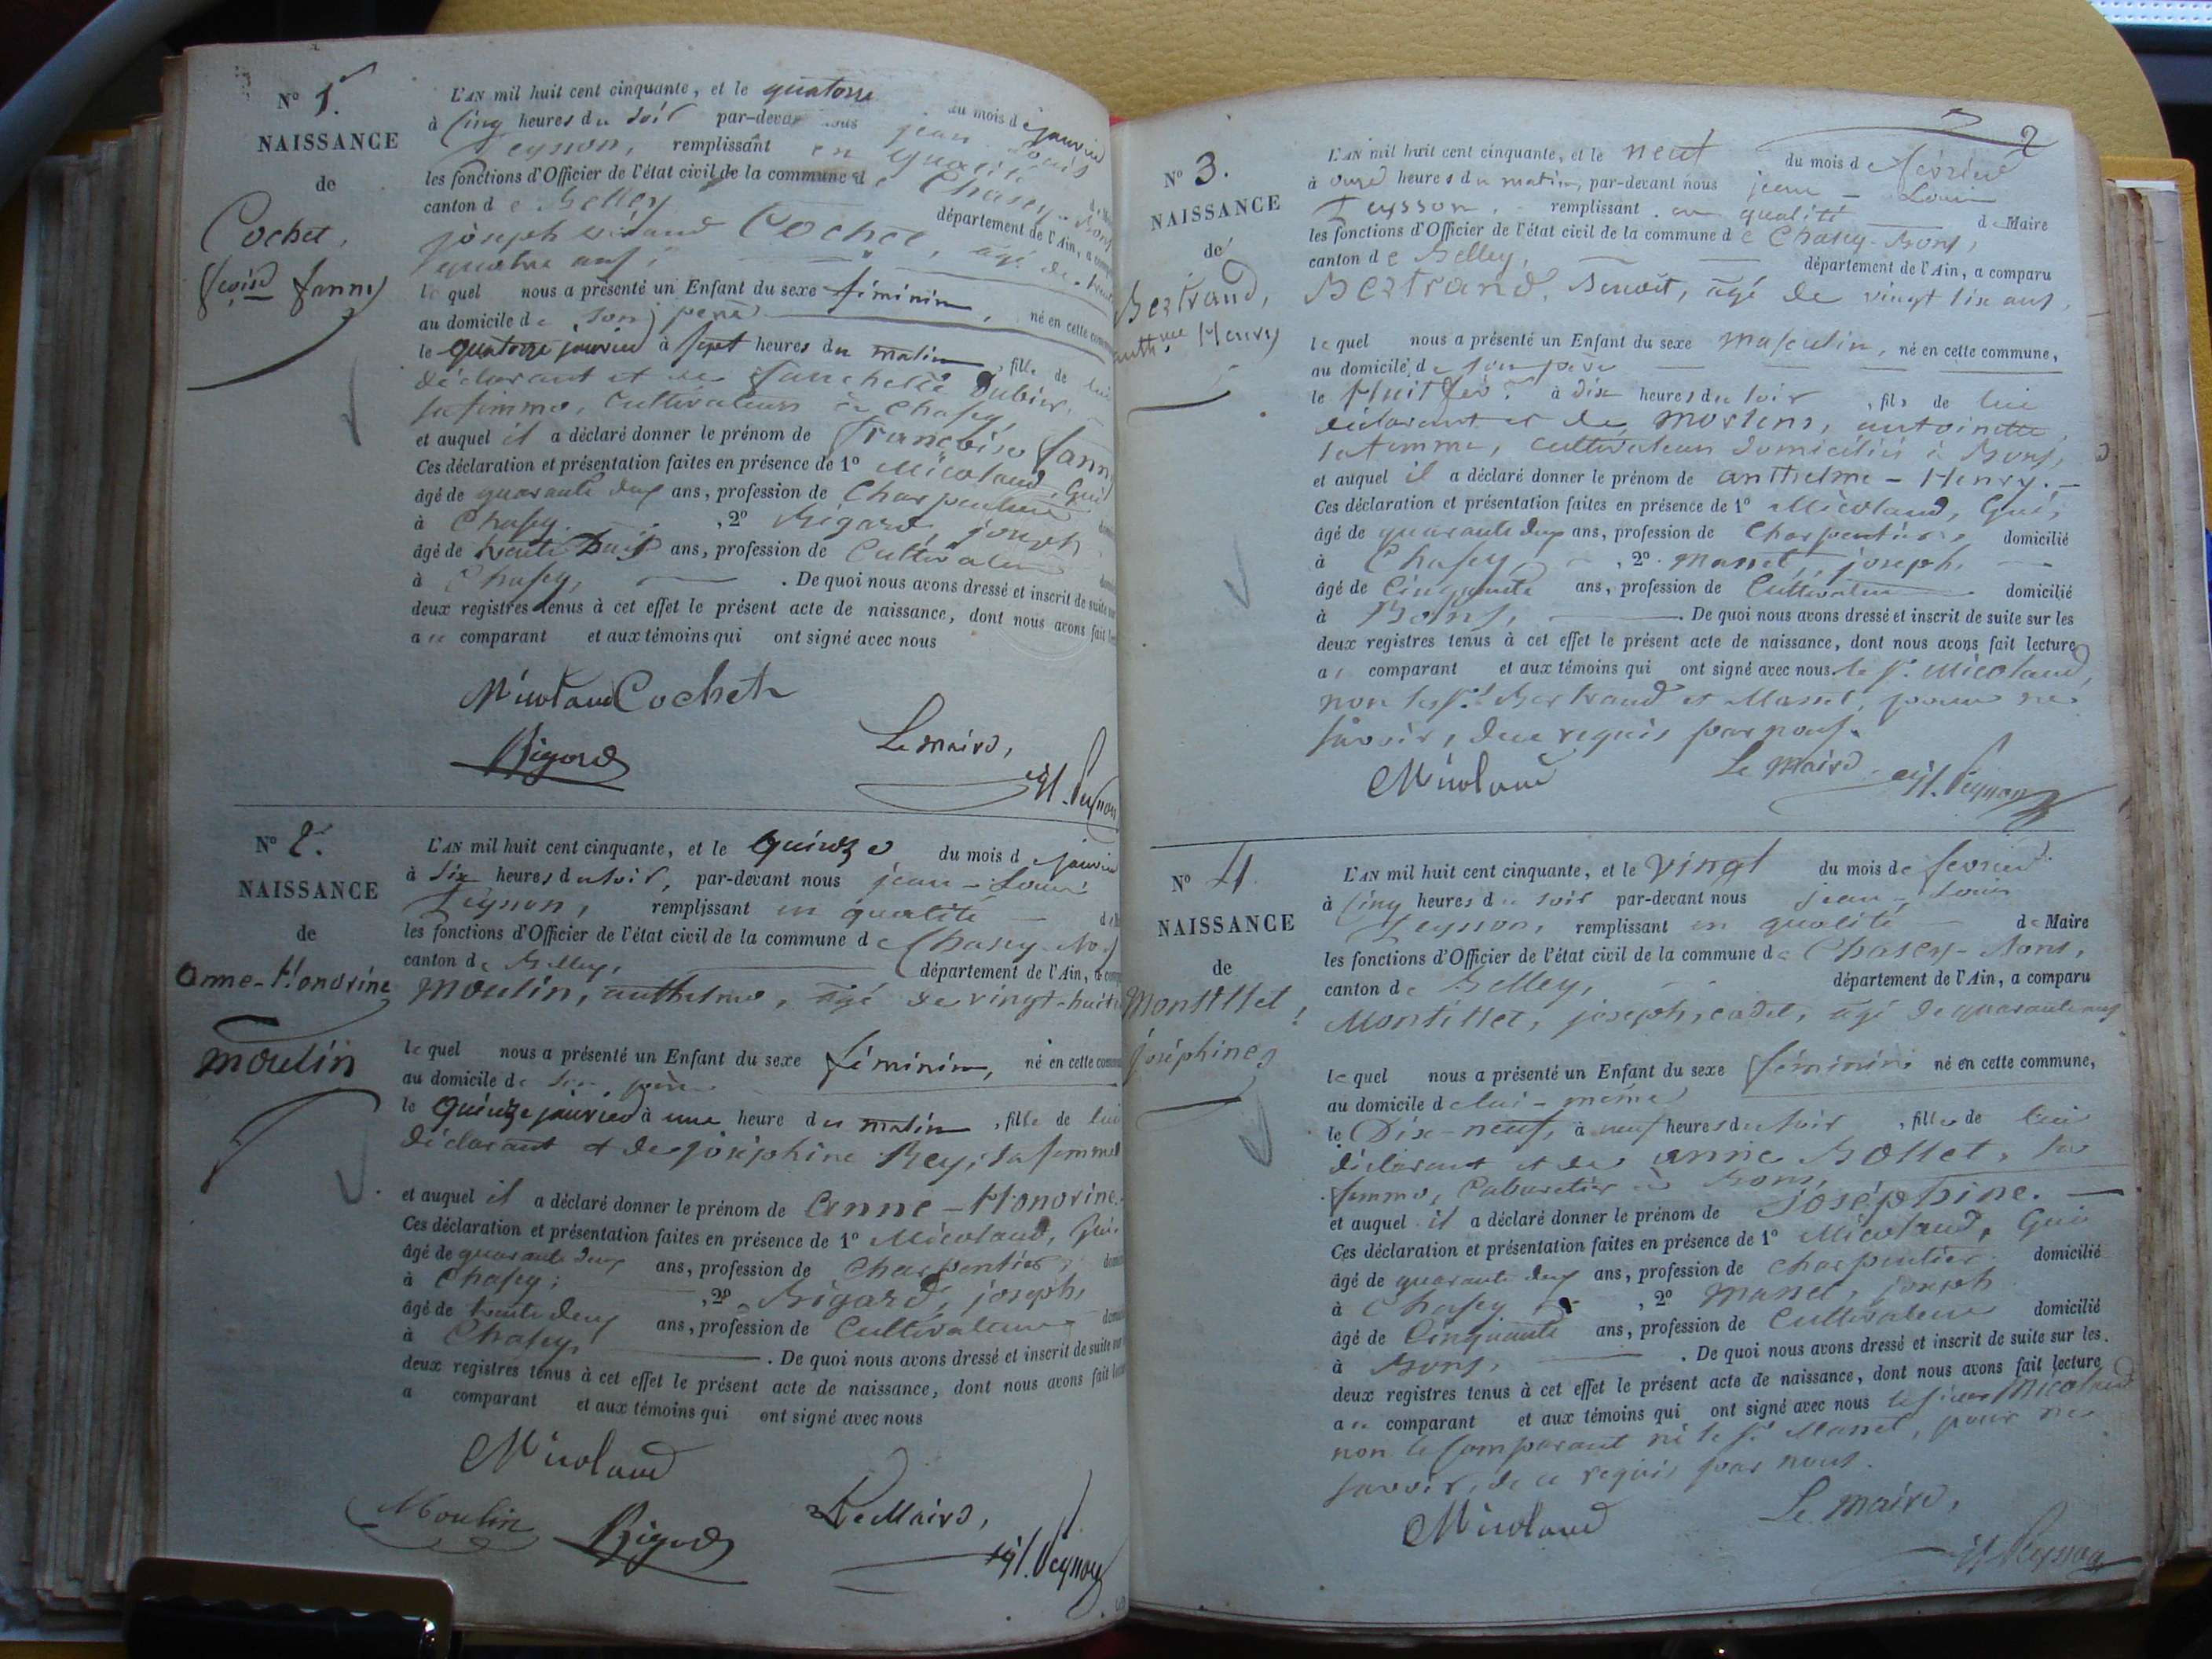 N° 1.
NAISSANCE
de
Cochet,
fçoise fanny
L'AN mil huit cent cinquante, et le quatorze du mois de janvier
à Cinq heures du soir par-devant nous jean Louis
Peysson, remplissant en qualité
les fonctions d'Officier de l'état civil de la commune de Chasey-Bons
canton de Belley département de l'Ain, a comparu
joseph Cochet, agé de trente
quatre ans,
lequel nous a présenté un Enfant du sexe féminin, né en cette commune
au domicile de son père
le quatorze janvier à sept heures du matin, fille de lui
déclarant et de fanchette Dubier,
sa femme, Cultivateurs à Chasey,
et auquel il a déclaré donner le prénom de françoise fanny
Ces déclaration et présentation faites en présence de 1° Micolaud, Gui
âgé de quarante deux ans, profession de Charpentier
à Chasey , 2° Rigard, joseph
âgé de trente deux ans, profession de Cultivateur
à Chasey, . De quoi nous avons dressé et inscrit de suite sur
deux registres tenus à cet effet le présent acte de naissance, dont nous avons fait
au comparant et aux témoins qui ont signé avec nous
Micolaud Cochet
Rigard Le maire,
jL. Peysson
N° 2.
NAISSANCE
de
anne-Honorine
moulin
L'AN mil huit cent cinquante, et le quinze du mois de janvier
à six heures du soir, par-devant nous jean-Louis
Peysson, remplissant en qualité
les fonctions d'Officier de l'état civil de la commune de Chasey-Bons
canton de Belley, département de l'Ain, a comparu
moulin, anthelme, agé de vingt-huit
lequel nous a présenté un Enfant du sexe féminin, né en cette commune
au domicile de son père
le quinze janvier à une heure du matin, fille de lui
déclarant et de joséphine Rey, sa femme
et auquel il a déclaré donner le prénom de anne-Honorine.
Ces déclaration et présentation faites en présence de 1° Micolaud, Gui
âgé de quarante deux ans, profession de Charpentier,
à Chasey, , 2° Rigard, joseph,
âgé de trente deux ans, profession de Cultivateur
à Chasey, . De quoi nous avons dressé et inscrit de suite
deux registres tenus à cet effet le présent acte de naissance, dont nous avons fait
a comparant et aux témoins qui ont signé avec nous
Micolaud
Moulin Rigard Le Maire,
jL. Peysson
2
N° 3.
NAISSANCE
de
Bertrand,
anth.me Henry
L'AN mil huit cent cinquante, et le neuf du mois de février
à onze heures du matin, par-devant nous jean-Louis
Peysson, remplissant en qualité de Maire
les fonctions d'Officier de l'état civil de la commune de Chasey-Bons,
canton de Belley, département de l'Ain, a comparu
Bertrand, Benoit, agé de vingt six ans,
lequel nous a présenté un Enfant du sexe masculin, né en cette commune,
au domicile de son père
le Huit fév. à dix heures du soir, fils de lui
déclarant et de mortens, antoinette
sa femme, cultivateurs domiciliés à Bons,
et auquel il a déclaré donner le prénom de anthelme-Henry.
Ces déclaration et présentation faites en présence de 1° Micolaud, Gui,
âgé de quarante deux ans, profession de Charpentier, domicilié
à Chasey, , 2° Masset, joseph,
âgé de Cinquante ans, profession de Cultivateur domicilié
à Bons, . De quoi nous avons dressé et inscrit de suite sur les
deux registres tenus à cet effet le présent acte de naissance, dont nous avons fait lecture
au comparant et aux témoins qui ont signé avec nous le Sr. Micolaud,
non les Srs. Bertrand et Masset, pour ne
savoir, de ce requis par nous.
Micolaud Le Maire
jL. Peysson
N° 4.
NAISSANCE
de
Montillet
joséphine
L'AN mil huit cent cinquante, et le vingt du mois de février
à Cinq heures du soir par-devant nous jean-Louis
Peysson, remplissant en qualité de Maire
les fonctions d'Officier de l'état civil de la commune de Chasey-Bons,
canton de Belley, département de l'Ain, a comparu
Montillet, joseph, cadet, agé de quarante ans
lequel nous a présenté un Enfant du sexe féminin né en cette commune,
au domicile de lui-même
le Dix-neuf, à neuf heures du soir, fille de lui
déclarant et de anne Bottet, sa
femme, Cabaretier à Bons,
et auquel il a déclaré donner le prénom de joséphine.
Ces déclaration et présentation faites en présence de 1° Micolaud, Gui
âgé de quarante deux ans, profession de charpentier domicilié
à Chasey , 2° Masset, joseph
âgé de Cinquante ans, profession de Cultivateur domicilié
à Bons, . De quoi nous avons dressé et inscrit de suite sur les
deux registres tenus à cet effet le présent acte de naissance, dont nous avons fait lecture
au comparant et aux témoins qui ont signé avec nous le sieur Micolaud
non le Comparant ni le Sr Masset, pour ne
savoir, de ce requis par nous.
Micolaud Le maire,
jL. Peysson